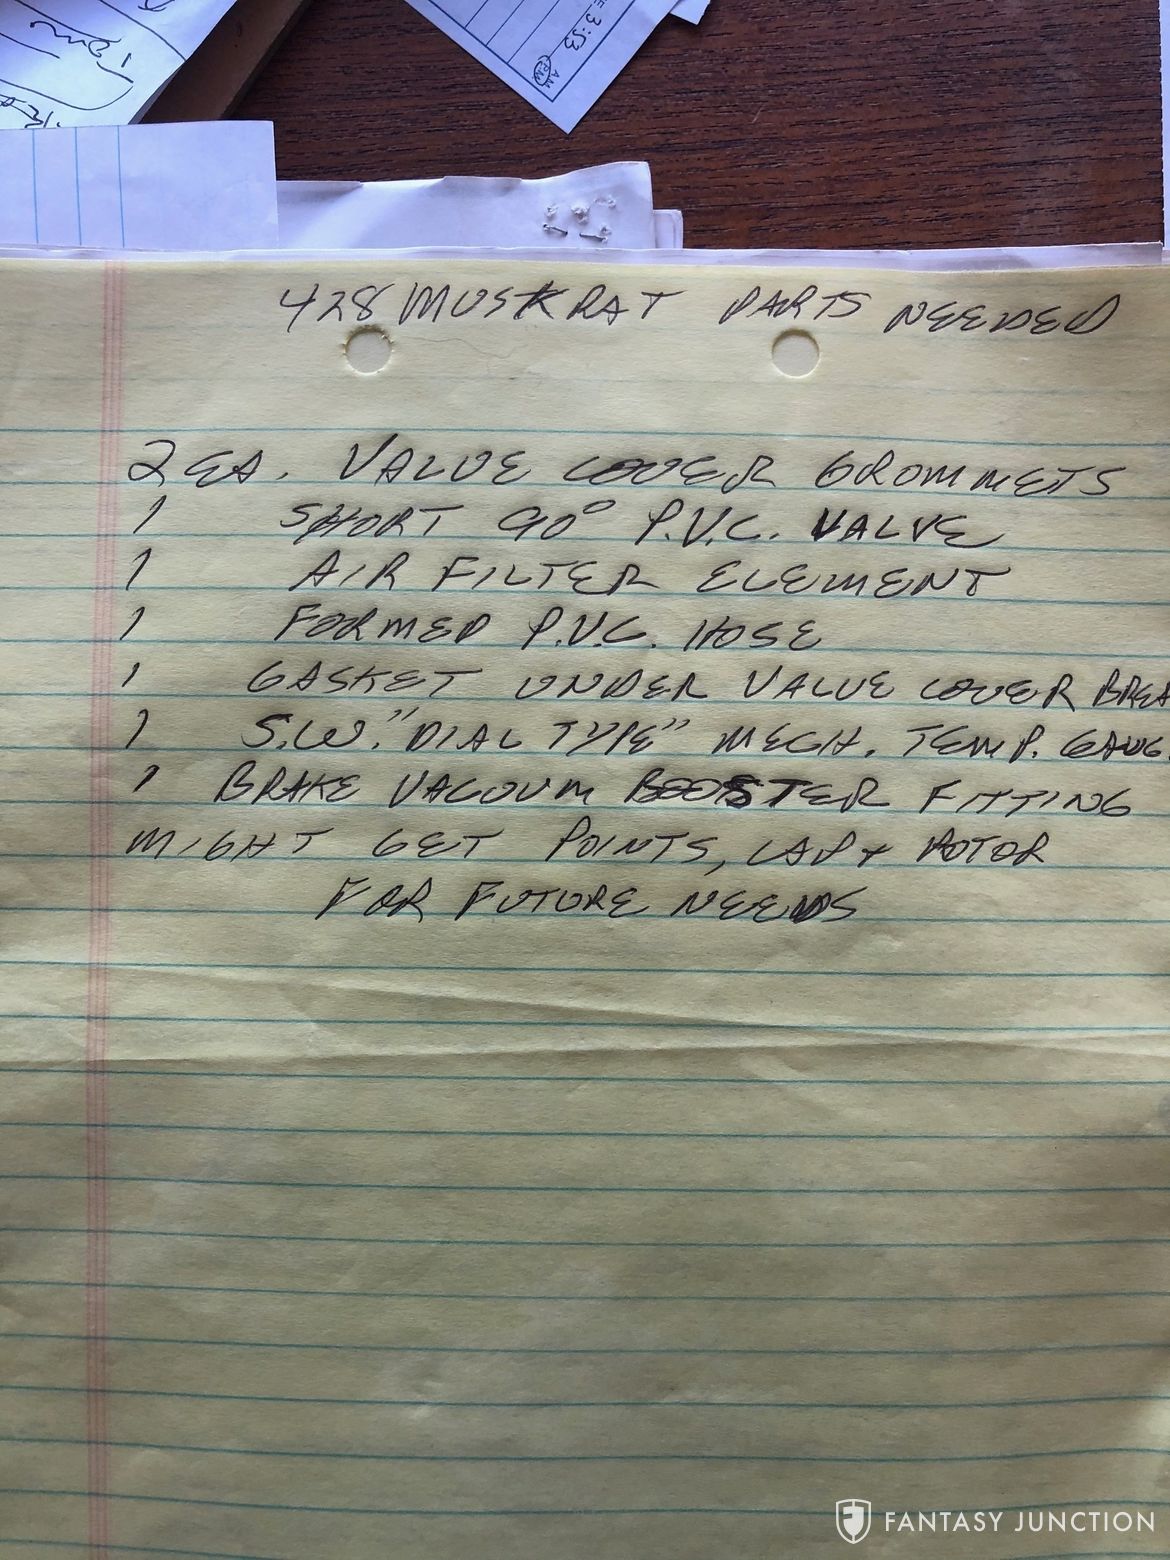 3:53
AM
PM
428 MUSKRAT PARTS NEEDED
2 EA. VALVE COVER GROMMETS
1 SHORT 90° P.V.C. VALVE
1 AIR FILTER ELEMENT
1 FORMED P.V.C. HOSE
1 GASKET UNDER VALVE COVER BREA
1 S.W. "DIAL TYPE" MECH. TEMP. GAUG
1 BRAKE VACUUM BOOSTER FITTING
MIGHT GET POINTS, CAP + ROTOR
FOR FUTURE NEEDS
FANTASY JUNCTION